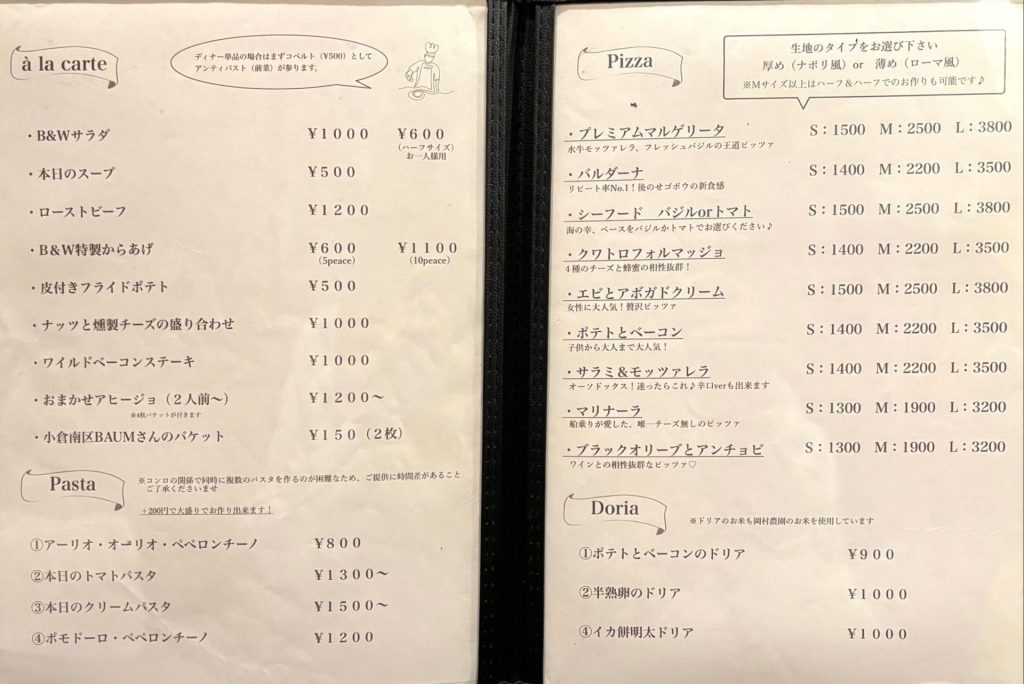 à la carte
ディナー単品の場合はまずコペルト（¥500）として
アンティパスト（前菜）が参ります。
・B&Wサラダ ¥1000 ¥600
（ハーフサイズ）
お一人様用
・本日のスープ ¥500
・ローストビーフ ¥1200
・B&W特製からあげ ¥600 ¥1100
（5peace） （10peace）
・皮付きフライドポテト ¥500
・ナッツと燻製チーズの盛り合わせ ¥1000
・ワイルドベーコンステーキ ¥1000
・おまかせアヒージョ（２人前〜） ¥1200〜
※4枚バケットが付きます
・小倉南区BAUMさんのバケット ¥150（２枚）
Pasta
※コンロの関係で同時に複数のパスタを作るのが困難なため、ご提供に時間差があること
ご了承くださいませ
＋200円で大盛りでお作り出来ます！
①アーリオ・オーリオ・ペペロンチーノ ¥800
②本日のトマトパスタ ¥1300〜
③本日のクリームパスタ ¥1500〜
④ポモドーロ・ペペロンチーノ ¥1200
Pizza
生地のタイプをお選び下さい
厚め（ナポリ風）or 薄め（ローマ風）
※Mサイズ以上はハーフ＆ハーフでのお作りも可能です♪
・プレミアムマルゲリータ S：1500 M：2500 L：3800
水牛モッツァレラ、フレッシュバジルの王道ピッツァ
・バルダーナ S：1400 M：2200 L：3500
リピート率No.1！後のせゴボウの新食感
・シーフード　バジルorトマト S：1500 M：2500 L：3800
海の幸、ベースをバジルかトマトでお選びください♪
・クワトロフォルマッジョ S：1400 M：2200 L：3500
４種のチーズと蜂蜜の相性抜群！
・エビとアボガドクリーム S：1500 M：2500 L：3800
女性に大人気！贅沢ピッツァ
・ポテトとベーコン S：1400 M：2200 L：3500
子供から大人まで大人気！
・サラミ＆モッツァレラ S：1400 M：2200 L：3500
オーソドックス！迷ったらこれ♪辛口verも出来ます
・マリナーラ S：1300 M：1900 L：3200
船乗りが愛した、唯一チーズ無しのピッツァ
・ブラックオリーブとアンチョビ S：1300 M：1900 L：3200
ワインとの相性抜群なピッツァ♡
Doria
※ドリアのお米も岡村農園のお米を使用しています
①ポテトとベーコンのドリア ¥900
②半熟卵のドリア ¥1000
④イカ餅明太ドリア ¥1000